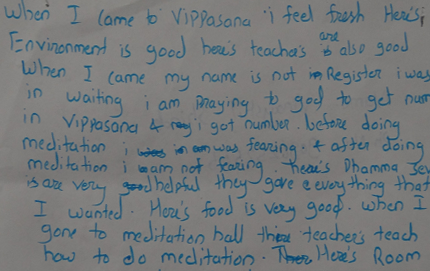 When I came to Vippasana i feel fresh Here's,
Environment is good here's teacha's are is also good
When I came my name is not in Register i was
in waiting i am Praying to god to get num
in Vippasana & my i got number. before doing
meditation i was in am was fearing. & after doing
meditation i am not fearing. here's Dhamma Sev
is are very good helpful they gave e everything that
I wanted. Here's food is very good. When I
gone to meditation hall there teacher's teach
how to do meditation. Here's Room